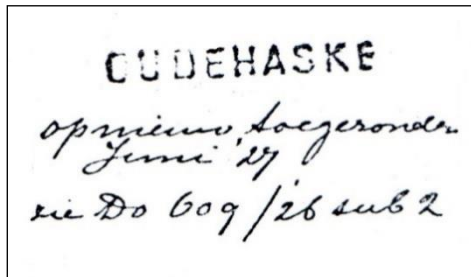 OUDEHASKE
opnieuw toegezonden
Juni '27
zie Do 609/26 sub 2